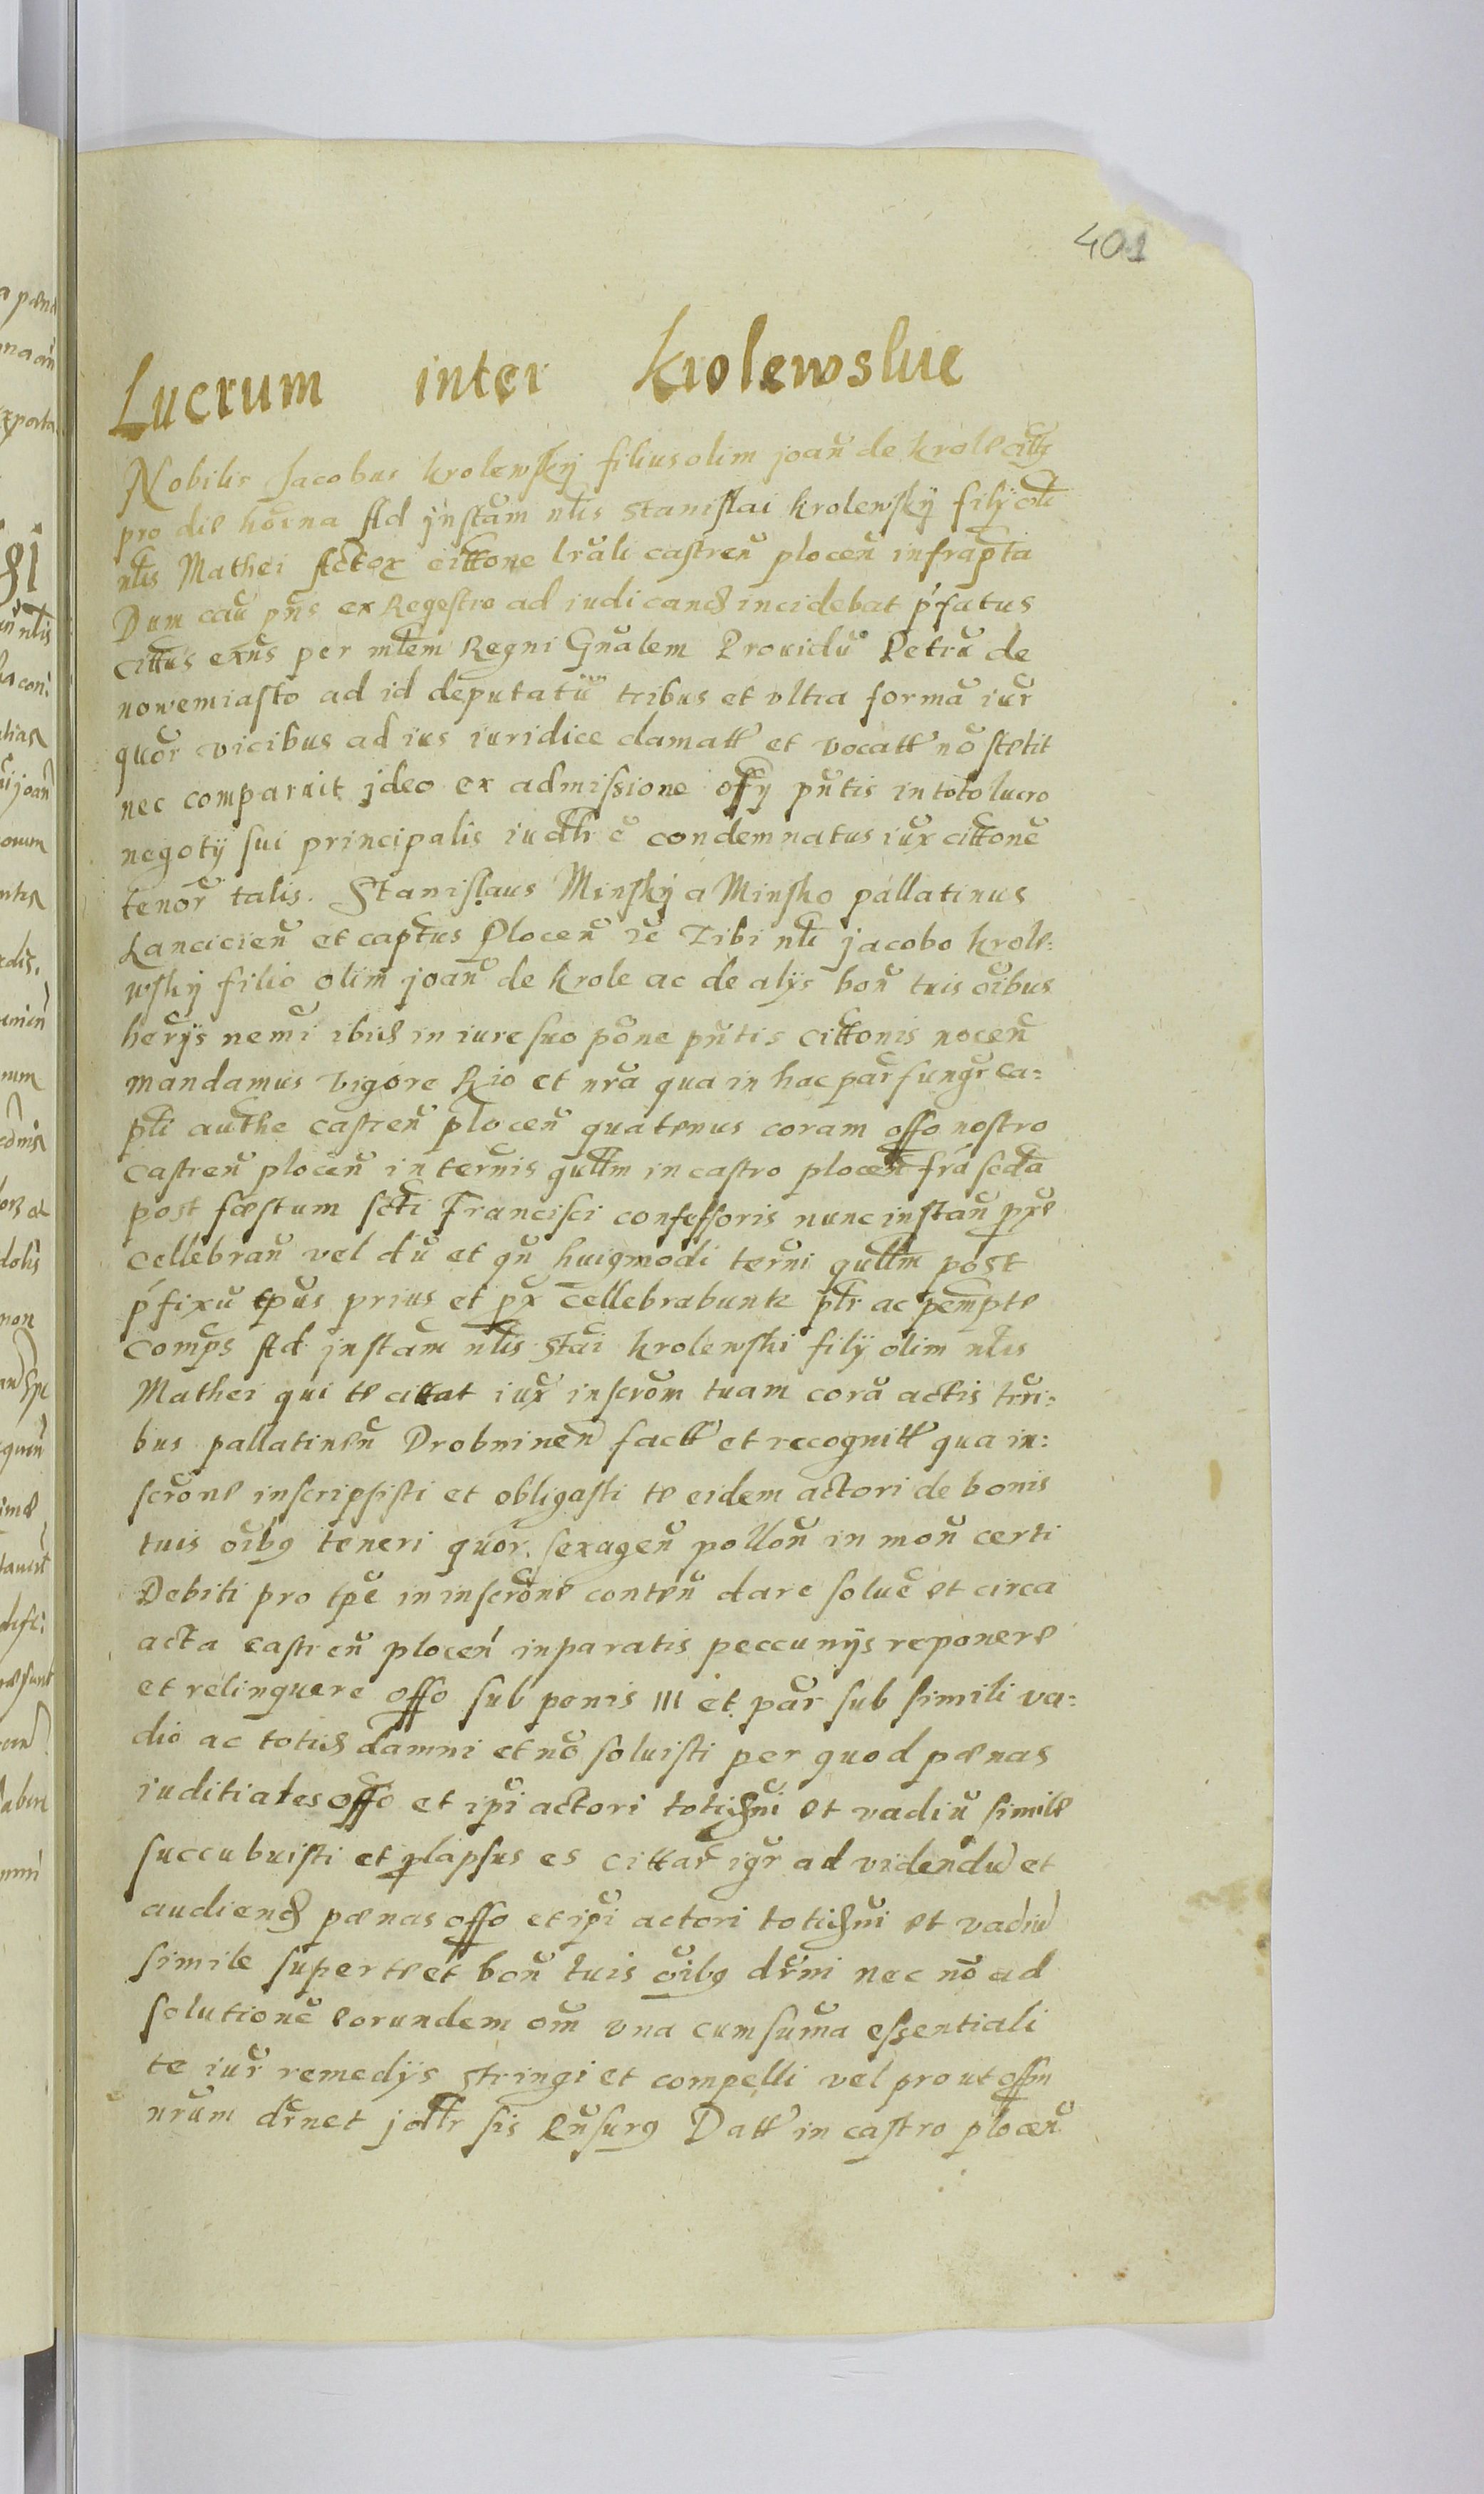 401
Lucrum inter Krolewskie
Nobilis Jacobus Krolewskÿ filius olim joañ de Krole citts
pro die hõina Ad jnstãm nłis Stanislai Krolewskÿ filÿ oli
nłis Mathei Actor cittone lrãli castreñploceñ infrapta
Dum caũ pñs ex Regestro ad iudicand incidebat pfatus
cittus exñs per młem Regni Gñalem Prouidũ Petrũ de
nowemiasto ad id deputatũ tribus et vltra formã iur
quor vicibus ad ius iuridice clamatt et vocatt nõ stetit
nec comparuit jdeo ex admissione offÿ pñtis in toto lucro
negotÿ sui principalis iudtr ẽ condemnatus iux cittonẽ
tenor talis. Stanislaus Minskÿ a Minsko pallatinus
Lancicieñ et captus Ploceñ zc Tibi nłi jacobo Krole:
wskÿ filio olim joañ de Krole ac de alÿs boñ tuis oĩbus
herÿs nemi ibid in iure suo põne pñtis cittonis noceñ
mandamus vigore Rio et nrã qua in hac par fungr ca:
pti authe castreñ ploceñ quatenus coram offo nostro
castreñ ploceñ in ternis qullm in castro ploceñ frã scda
post fæstum scti Francisci confessoris nunc instañ pxe
cellebrañ vel dũ et qñ huiqmodi terni qullm post
pfixũ tpus prius et px cellebrabunt ptr ac pempte
comps Ad jnstãm nłis Stãi Krolewski filÿ olim nłis
Mathei qui te cittat iux inscrõm tuam corã actis trri:
bus pallatineñ Drobnineñ factt et recognitt qua in:
scrõne inscripsisti et obligasti te eidem actori de bonis
tuis oĩbq teneri quor. sexageñ polloñ in moñ certi
Debiti pro tpe in inscrõne conteñ dare soluẽ et circa
acta castreñ ploceñ in paratis peccunÿs reponere
et relinquere offo sub penis III et par sub simili va:
dio ac totid damni et nõ soluisti per quod pænas
iuditiales offo et ipi actori totidni et vadiũ simile
succubuisti et plapsus es cittar igr ad videndũ et
audiend pænas offo et ipi actori totidni et vadiũ
simile super te et boñ tuis oĩbq drni nec nõ ad
solutionẽ eorundem om vna cum sũma essentiali
te iur remedÿs stringi et compelli vel prout offm
nrũm drnet jdtr sis Rñsurq Datt in castro ploceñ